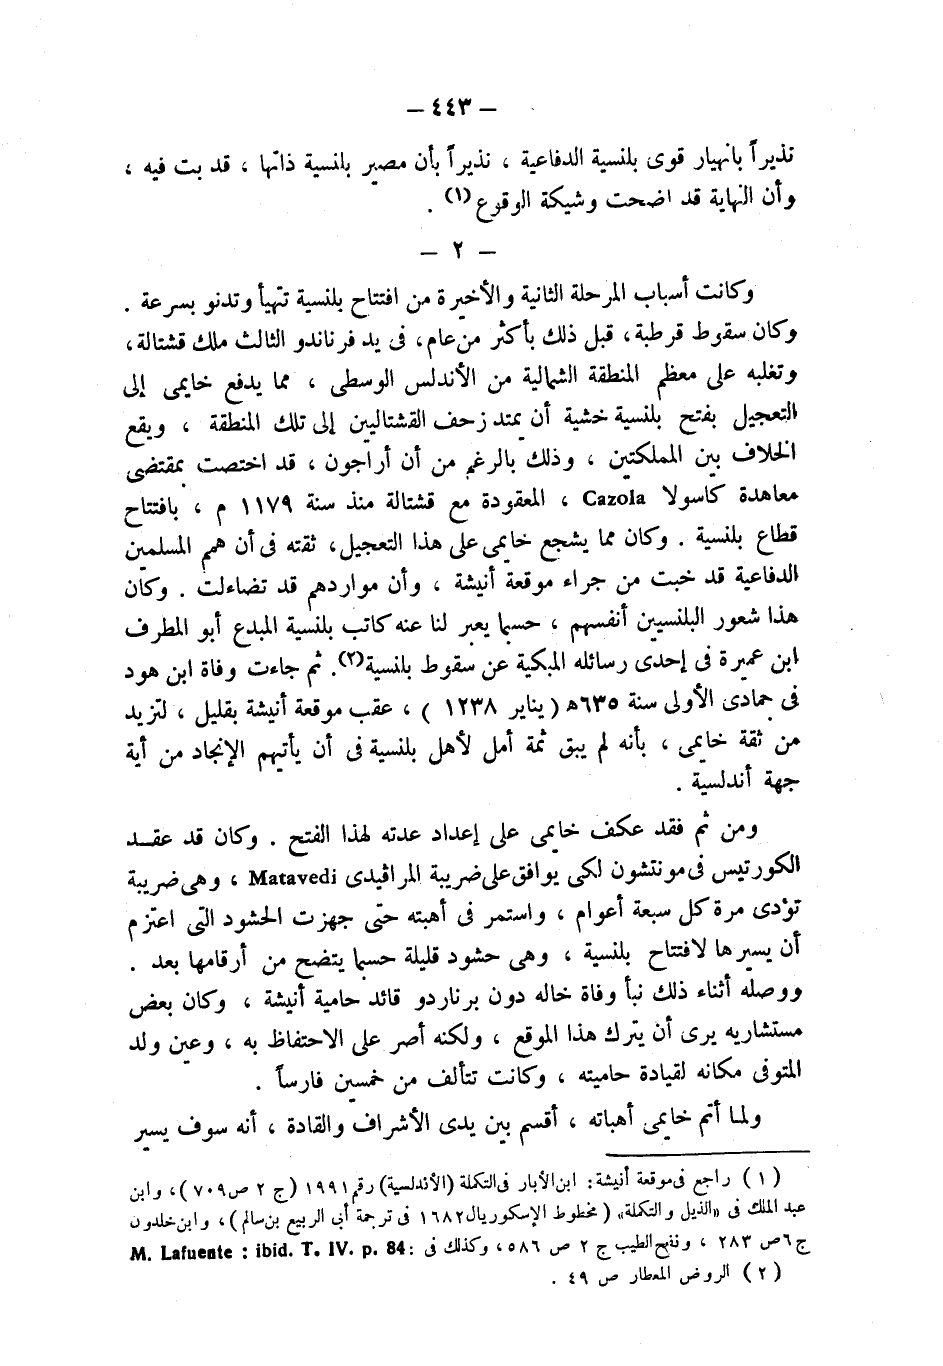 — ٤٤٣ —
نذيراً بانهيار قوى بلنسية الدفاعية ، نذيراً بأن مصير بلنسية ذاتها ، قد بت فيه ،
وأن النهاية قد اضحت وشيكة الوقوع (١) .
— ٢ —
وكانت أسباب المرحلة الثانية والأخيرة من افتتاح بلنسية تتهيأ وتدنو بسرعة .
وكان سقوط قرطبة ، قبل ذلك بأكثر من عام ، فى يد فرناندو الثالث ملك قشتالة ،
وتغلبه على معظم المنطقة الشمالية من الأندلس الوسطى ، مما يدفع خايمى إلى
التعجيل بفتح بلنسية خشية أن يمتد زحف القشتاليين إلى تلك المنطقة ، ويقع
الخلاف بين المملكتين ، وذلك بالرغم من أن أراجون ، قد اختصت بمقتضى
معاهدة كاسولا Cazola ، المعقودة مع قشتالة منذ سنة ١١٧٩ م ، بافتتاح
قطاع بلنسية . وكان مما يشجع خايمى على هذا التعجيل ، ثقته فى أن همم المسلمين
الدفاعية قد خبت من جراء موقعة أنيشة ، وأن مواردهم قد تضاءلت . وكان
هذا شعور البلنسيين أنفسهم ، حسبما يعبر لنا عنه كاتب بلنسية المبدع أبو المطرف
ابن عميرة فى إحدى رسائله المبكية عن سقوط بلنسية (٢) . ثم جاءت وفاة ابن هود
فى جمادى الأولى سنة ٦٣٥ ه ( يناير ١٢٣٨ ) ، عقب موقعة أنيشة بقليل ، لتزيد
من ثقة خايمى ، بأنه لم يبق ثمة أمل لأهل بلنسية فى أن يأتيهم الإنجاد من أية
جهة أندلسية .
ومن ثم فقد عكف خايمى على إعداد عدته لهذا الفتح . وكان قد عقـد
الكورتيس فى مونتشون لكى يوافق على ضريبة المراڤيدى Matavedi ، وهى ضريبة
تؤدى مرة كل سبعة أعوام ، واستمر فى أهبته حتى جهزت الحشود التى اعتزم
أن يسيرها لافتتاح بلنسية ، وهى حشود قليلة حسبما يتضح من أرقامها بعد .
ووصله أثناء ذلك نبأ وفاة خاله دون برناردو قائد حامية أنيشة ، وكان بعض
مستشاريه يرى أن يترك هذا الموقع ، ولكنه أصر على الاحتفاظ به ، وعين ولد
المتوفى مكانه لقيادة حاميته ، وكانت تتألف من خمسين فارساً .
ولما أتم خايمى أهباته ، أقسم بين يدى الأشراف والقادة ، أنه سوف يسير
( ١ ) راجع فى موقعة أنيشة : ابن الأبار فى التكملة (الأندلسية) رقم ١٩٩١ ( ج ٢ ص ٧٠٩ ) ، وابن
عبد الملك فى «الذيل والتكملة» ( مخطوط الإسكوريال ١٦٨٢ فى ترجمة أبى الربيع بن سالم ) ، وابن خلدون
ج ٦ ص ٢٨٣ ، ونفح الطيب ج ٢ ص ٥٨٦ ، وكذلك فى : M. Lafuente : ibid. T. IV. p. 84
( ٢ ) الروض المعطار ص ٤٩ .